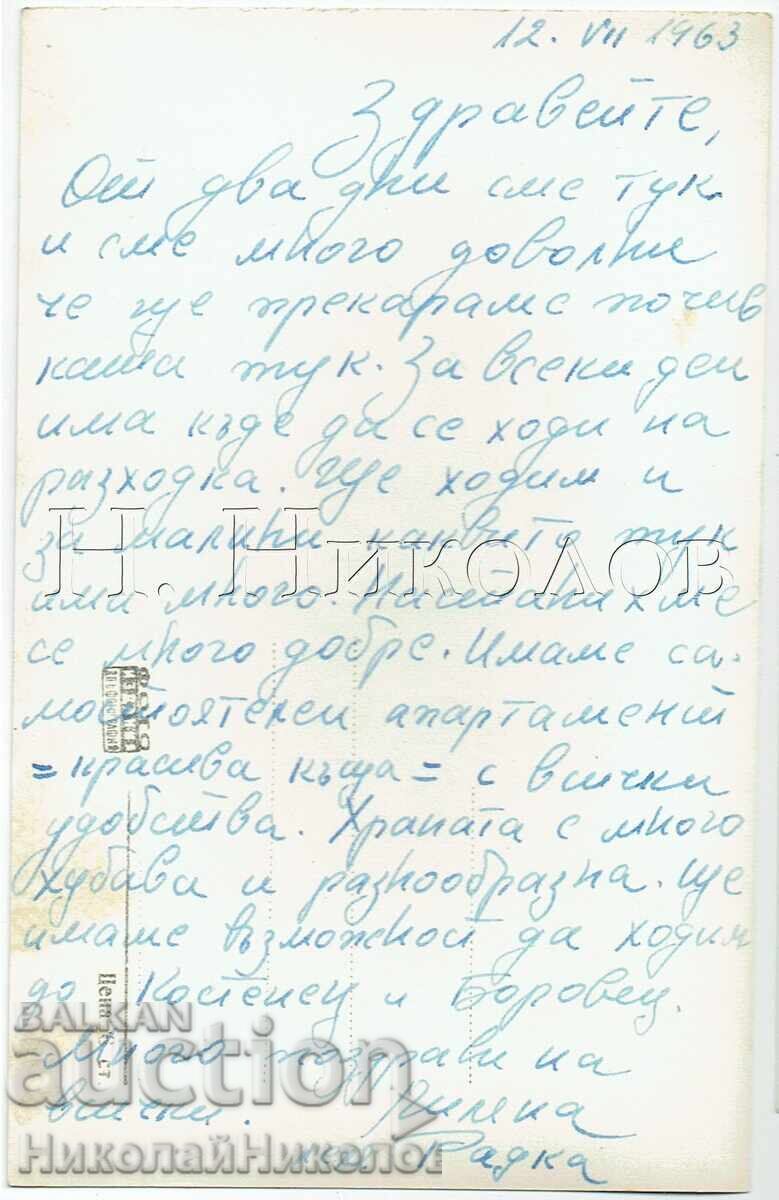 12. VII 1963
Здравейте,
От два дни сме тук
и сме много доволни
че ще прекараме почив
ката тук. За всеки ден
има къде да се ходи на
разходка. Ще ходим и
за малини каквито тук
има много. Настанихме
се много добре. Имаме са-
мостоятелен апартамент
=красива къща= с всички
удобства. Храната е много
хубава и разнообразна. Ще
имаме възможност да ходим
до Костенец и Боровец.
Много поздрави на
всички.
Радка
Цена ст.
Н. Николов
BALKAN
auction
НиколайНиколов